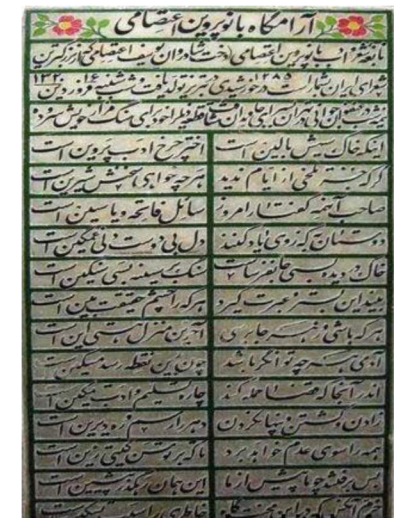 آرامگاه بانو پروین اعتصامی
ادب بانو پروین اعتصامی دخت شادروان یوسف اعتصامی که از بزرگترین
شعرای ایران بشمار است در ۱۲۸۵ خورشیدی در تبریز تولد یافت و شب شنبه ۱۶ فروردین ۱۳۲۰
جوانی تهران بسرای جاویدان شتافت قطعه زیر را خود برای سنگ مزار خویش سرود
اینکه خاک سیهش بالین است اختر چرخ ادب پروین است
گرچه جز تلخی از ایام ندید هر چه خواهی سخنش شیرین است
صاحب آنهمه گفتار امروز سائل فاتحه و یاسین است
دوستان به که ز وی یاد کنند دل بی دوست دلی غمگین است
خاک در دیده بسی جان فرساست سنگ بر سینه بسی سنگین است
بیند این بستر و عبرت گیرد هر که را چشم حقیقت بین است
هر که باشی و ز هر جا برسی آخرین منزل هستی این است
آدمی هر چه توانگر باشد چون بدین نقطه رسد مسکین است
اندر آنجا که قضا حمله کند چاره تسلیم و ادب تمکین است
زادن و کشتن و پنهان کردن دهر را رسم و ره دیرین است
همه را سوی عدم خواهد برد تا که بر پشت زین است
پس برفتند چو ما پیش از ما این همان رهگذر پیشین است
خرم آنکس که در این محنت گاه خاطری را تسکین است